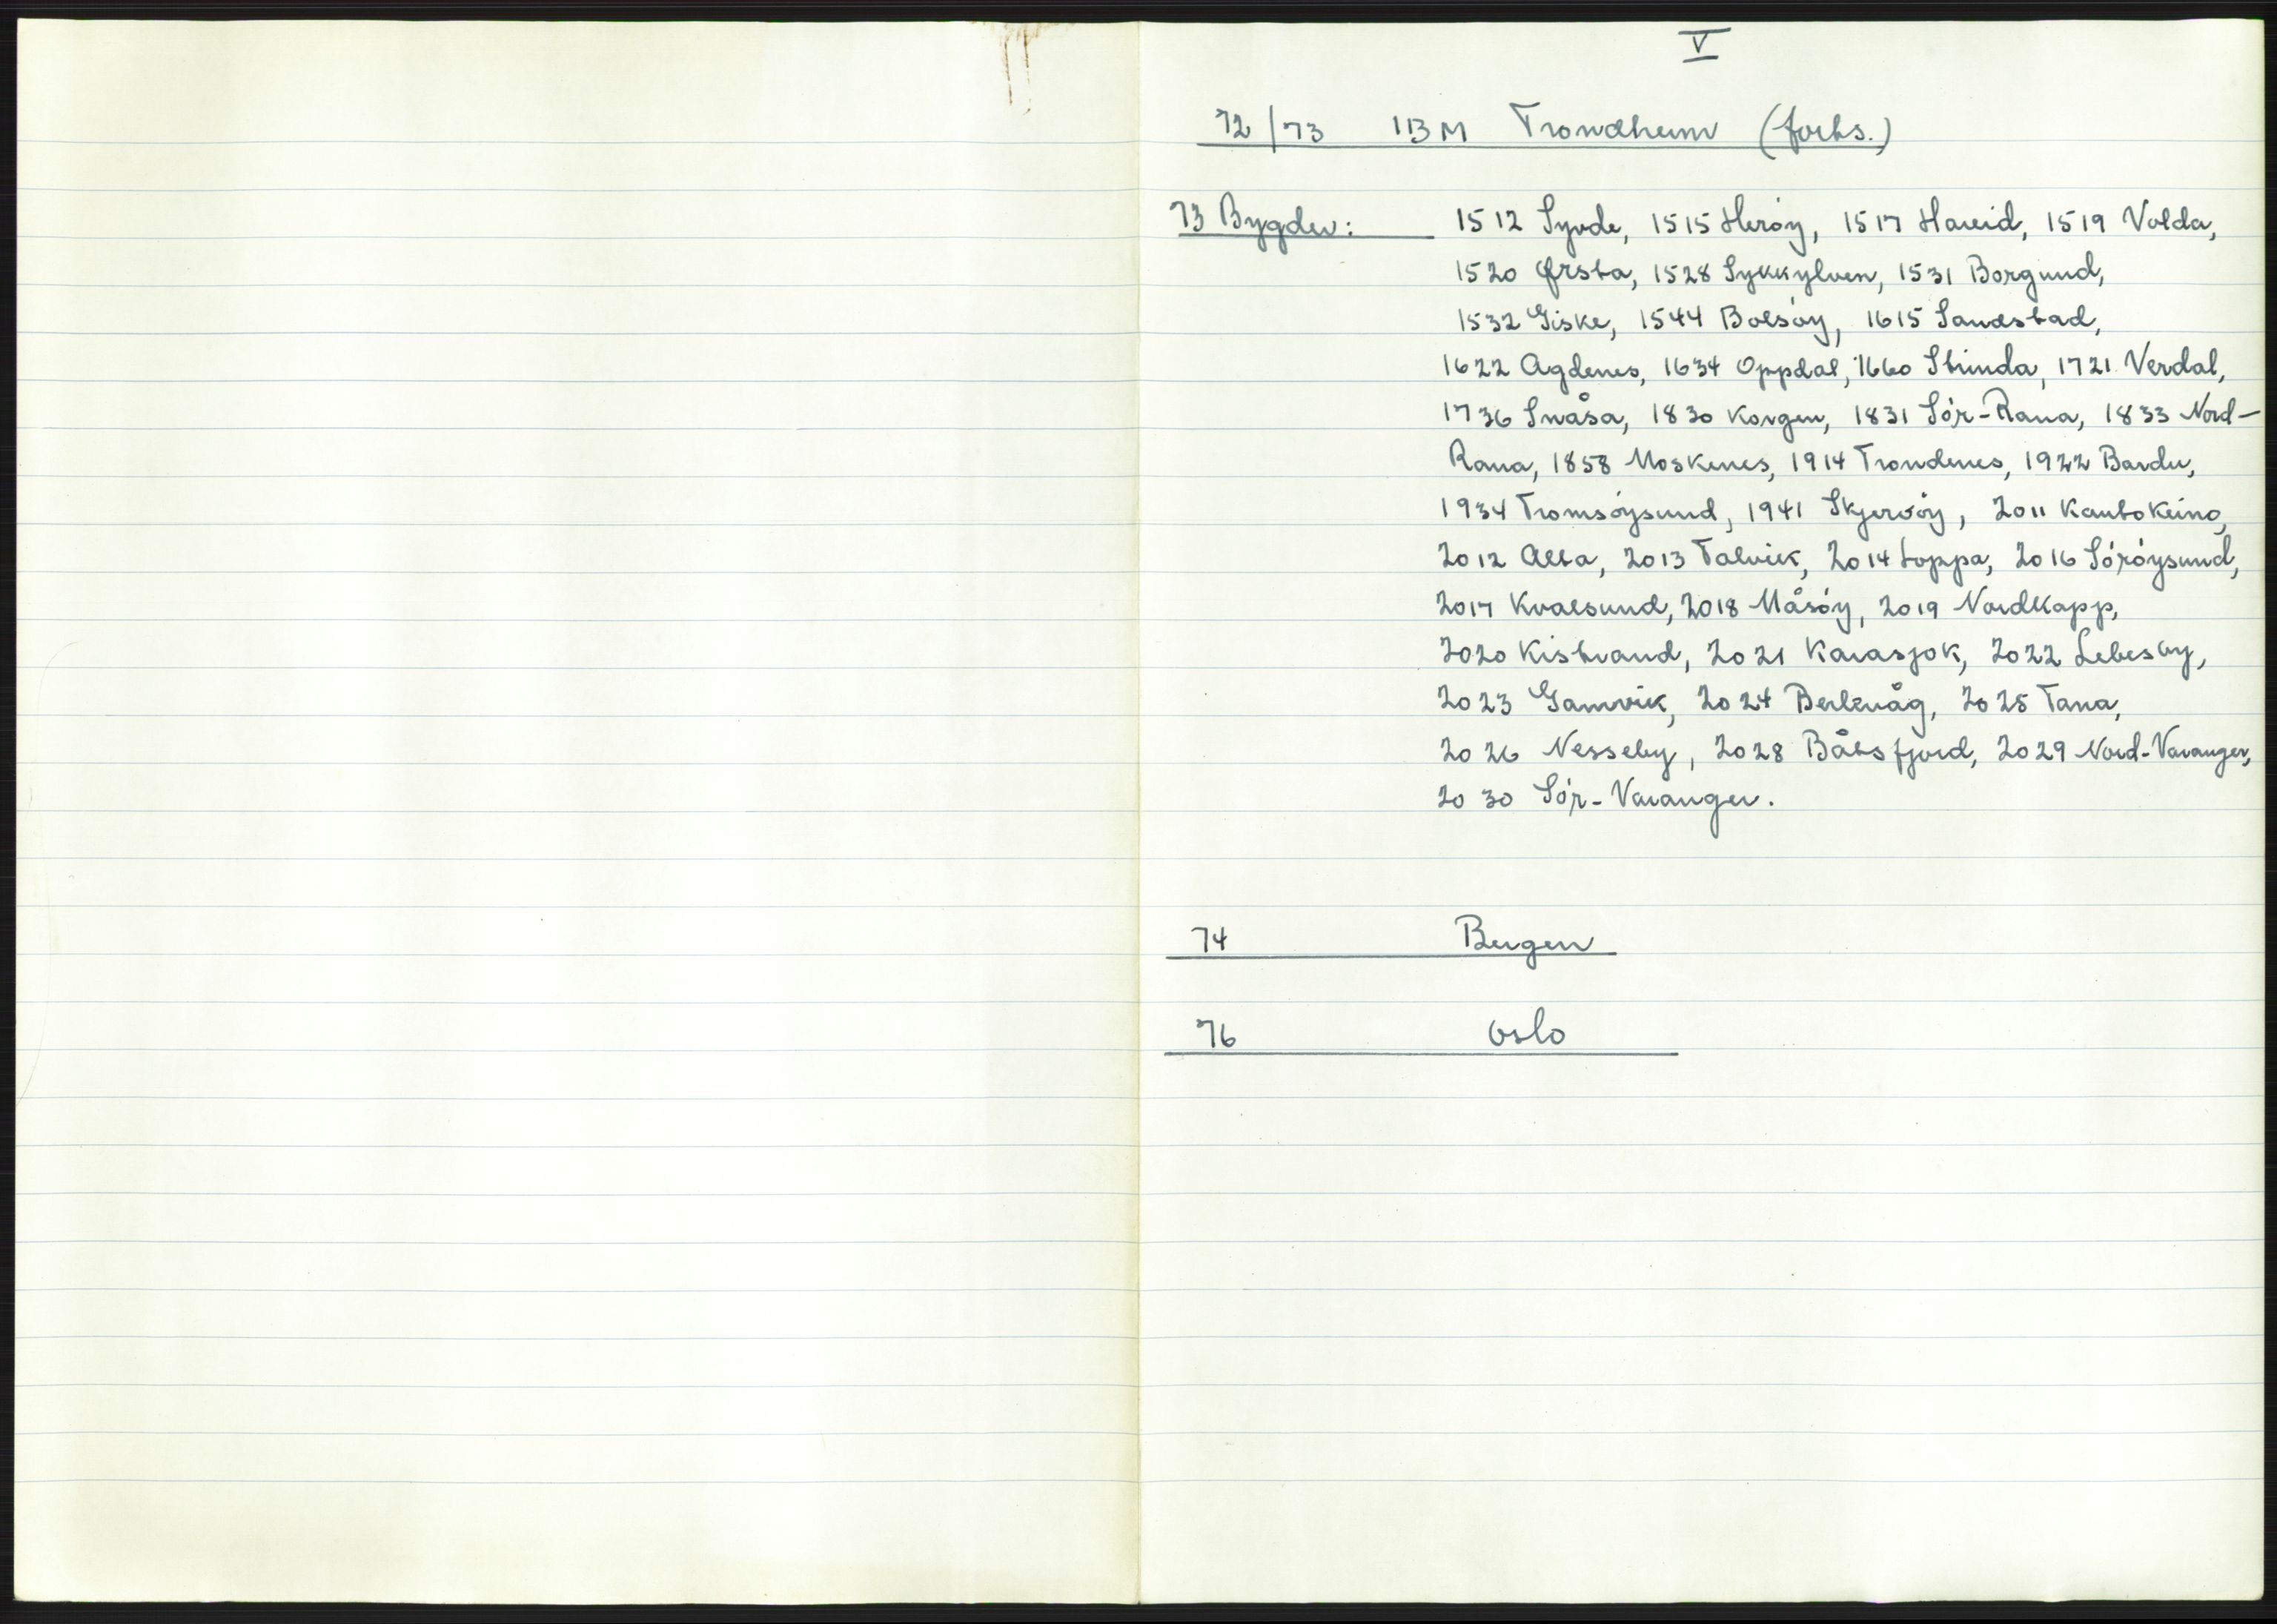 V
72/73 IBM Trondheim (forts.)
73 Bygder: 1512 Syvde, 1515 Herøy, 1517 Hareid, 1519 Volda,
1520 Ørsta, 1528 Sykkylven, 1531 Borgund,
1532 Giske, 1544 Bolsøy, 1615 Sandstad,
1622 Agdenes, 1634 Oppdal, 1660 Strinda, 1721 Verdal,
1736 Snåsa, 1830 Korgen, 1831 Sør-Rana, 1833 Nord-
Rana, 1858 Moskenes, 1914 Trondenes, 1922 Bardu,
1934 Tromsøysund, 1941 Skjervøy, 2011 Kautokeino,
2012 Alta, 2013 Talvik, 2014 Loppa, 2016 Sørøysund,
2017 Kvalsund, 2018 Måsøy, 2019 Nordkapp,
2020 Kistrand, 2021 Karasjok, 2022 Lebesby,
2023 Gamvik, 2024 Berlevåg, 2025 Tana,
2026 Nesseby, 2028 Båtsfjord, 2029 Nord-Varanger,
2030 Sør-Varanger.
74 Bergen
76 Oslo